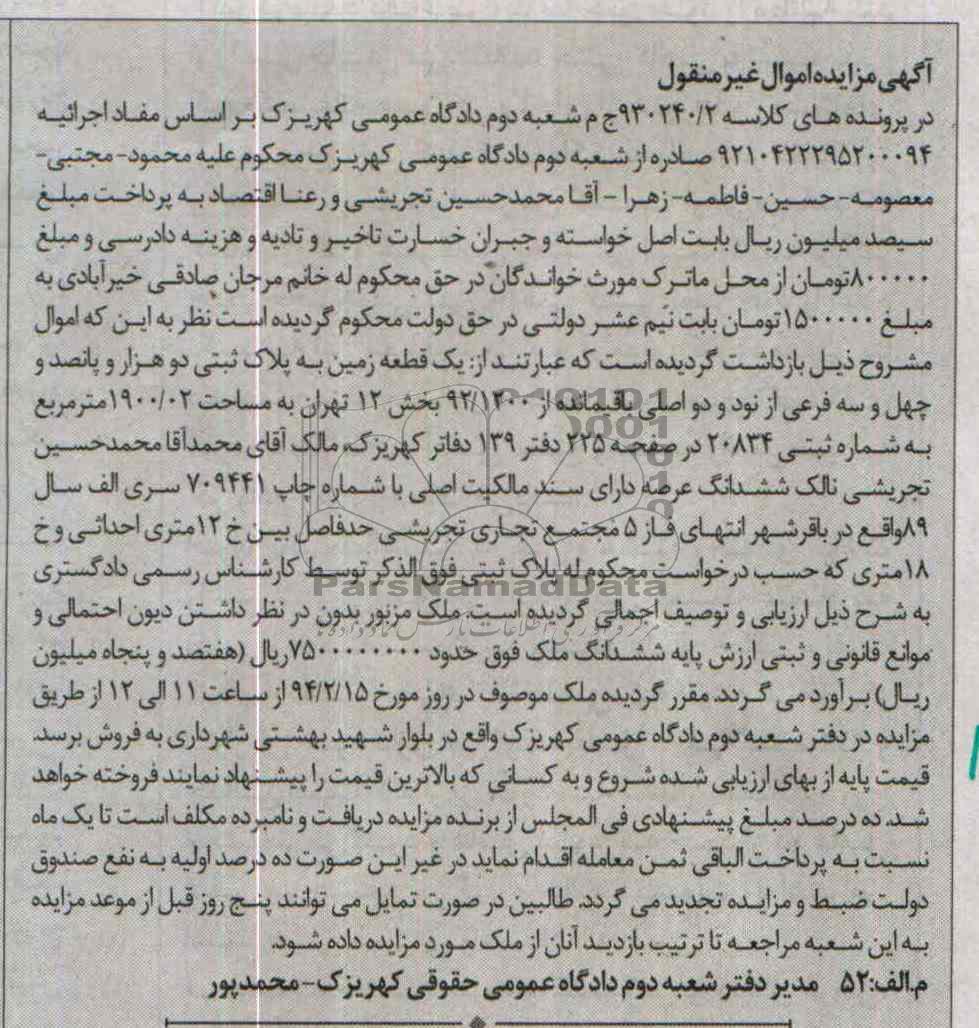 آگهی مزایده اموال غیر منقول
در پرونده های کلاسه ۹۳۰۲۴۰/۲ج م شعبه دوم دادگاه عمومی کهریزک بر اساس مفاد اجرائیه
۹۲۱۰۴۲۲۲۹۵۲۰۰۰۹۴ صادره از شعبه دوم دادگاه عمومی کهریزک محکوم علیه محمود- مجتبی-
معصومه- حسین- فاطمه- زهرا - آقا محمدحسین تجریشی و رعنا اقتصاد به پرداخت مبلغ
سیصد میلیون ریال بابت اصل خواسته و جبران خسارت تاخیر و تادیه و هزینه دادرسی و مبلغ
۸۰۰۰۰۰تومان از محل ماترک مورث خواندگان در حق محکوم له خانم مرجان صادقی خیرآبادی به
مبلغ ۱۵۰۰۰۰۰تومان بابت نیم عشر دولتی در حق دولت محکوم گردیده است نظر به این که اموال
مشروح ذیل بازداشت گردیده است که عبارتند از: یک قطعه زمین به پلاک ثبتی دو هزار و پانصد و
چهل و سه فرعی از نود و دو اصلی باقیمانده از ۹۲/۱۲۰۰ بخش ۱۲ تهران به مساحت ۱۹۰۰/۰۲مترمربع
به شماره ثبتی ۲۰۸۳۴ در صفحه ۲۲۵ دفتر ۱۳۹ دفاتر کهریزک، مالک آقای محمدآقا محمدحسین
تجریشی نالک ششدانگ عرصه دارای سند مالکیت اصلی با شماره چاپ ۷۰۹۴۴۱ سری الف سال
۸۹واقع در باقرشهر انتهای فاز ۵ مجتمع تجاری تجریشی حدفاصل بین خ ۱۲متری احداثی و خ
۱۸متری که حسب درخواست محکوم له پلاک ثبتی فوق الذکر توسط کارشناس رسمی دادگستری
به شرح ذیل ارزیابی و توصیف اجمالی گردیده است. ملک مزبور بدون در نظر داشتن دیون احتمالی و
موانع قانونی و ثبتی ارزش پایه ششدانگ ملک فوق حدود ۷۵۰۰۰۰۰۰۰۰۰ریال (هفتصد و پنجاه میلیون
ریال) برآورد می گردد. مقرر گردیده ملک موصوف در روز مورخ ۹۴/۲/۱۵ از ساعت ۱۱ الی ۱۲ از طریق
مزایده در دفتر شعبه دوم دادگاه عمومی کهریزک واقع در بلوار شهید بهشتی شهرداری به فروش برسد.
قیمت پایه از بهای ارزیابی شده شروع و به کسانی که بالاترین قیمت را پیشنهاد نمایند فروخته خواهد
شد. ده درصد مبلغ پیشنهادی فی المجلس از برنده مزایده دریافت و نامبرده مکلف است تا یک ماه
نسبت به پرداخت الباقی ثمن معامله اقدام نماید در غیر این صورت ده درصد اولیه به نفع صندوق
دولت ضبط و مزایده تجدید می گردد. طالبین در صورت تمایل می توانند پنج روز قبل از موعد مزایده
به این شعبه مراجعه تا ترتیب بازدید آنان از ملک مورد مزایده داده شود.
م.الف:۵۲ مدیر دفتر شعبه دوم دادگاه عمومی حقوقی کهریزک- محمدپور
ParsNamadData